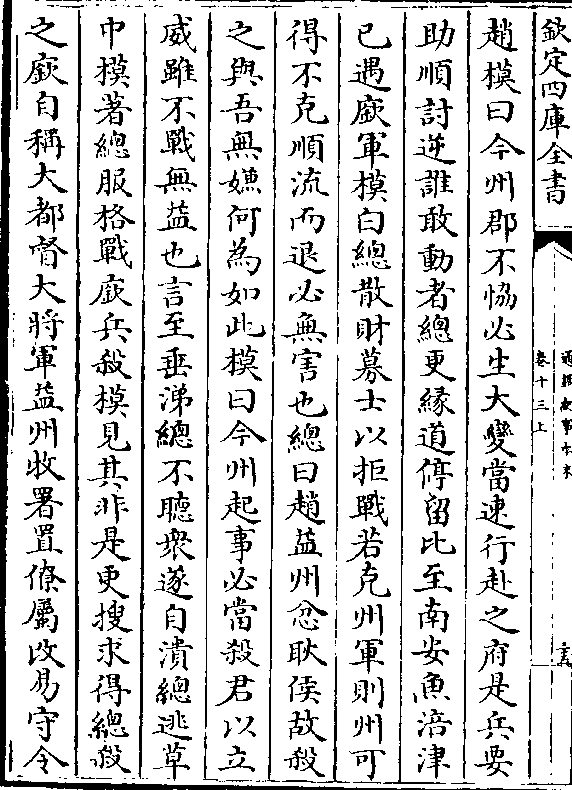 欽定四庫全書
通鑑紀事本末
卷十三上
趙模曰今州郡不恊必生大變當速行赴之府是兵要
助順討逆誰敢動者總更緣道停留比至南安魚涪津
已遇廞軍模白總散財募士以拒戰若克州軍則州可
得不克順流而退必無害也總曰趙益州忿耿侯故殺
之與吾無嫌何為如此模曰今州起事必當殺君以立
威雖不戰無益也言至垂涕總不聽衆遂自潰總逃草
中模著總服格戰廞兵殺模見其非是更搜求得總殺
之廞自稱大都督大將軍益州牧署置僚屬改易守令